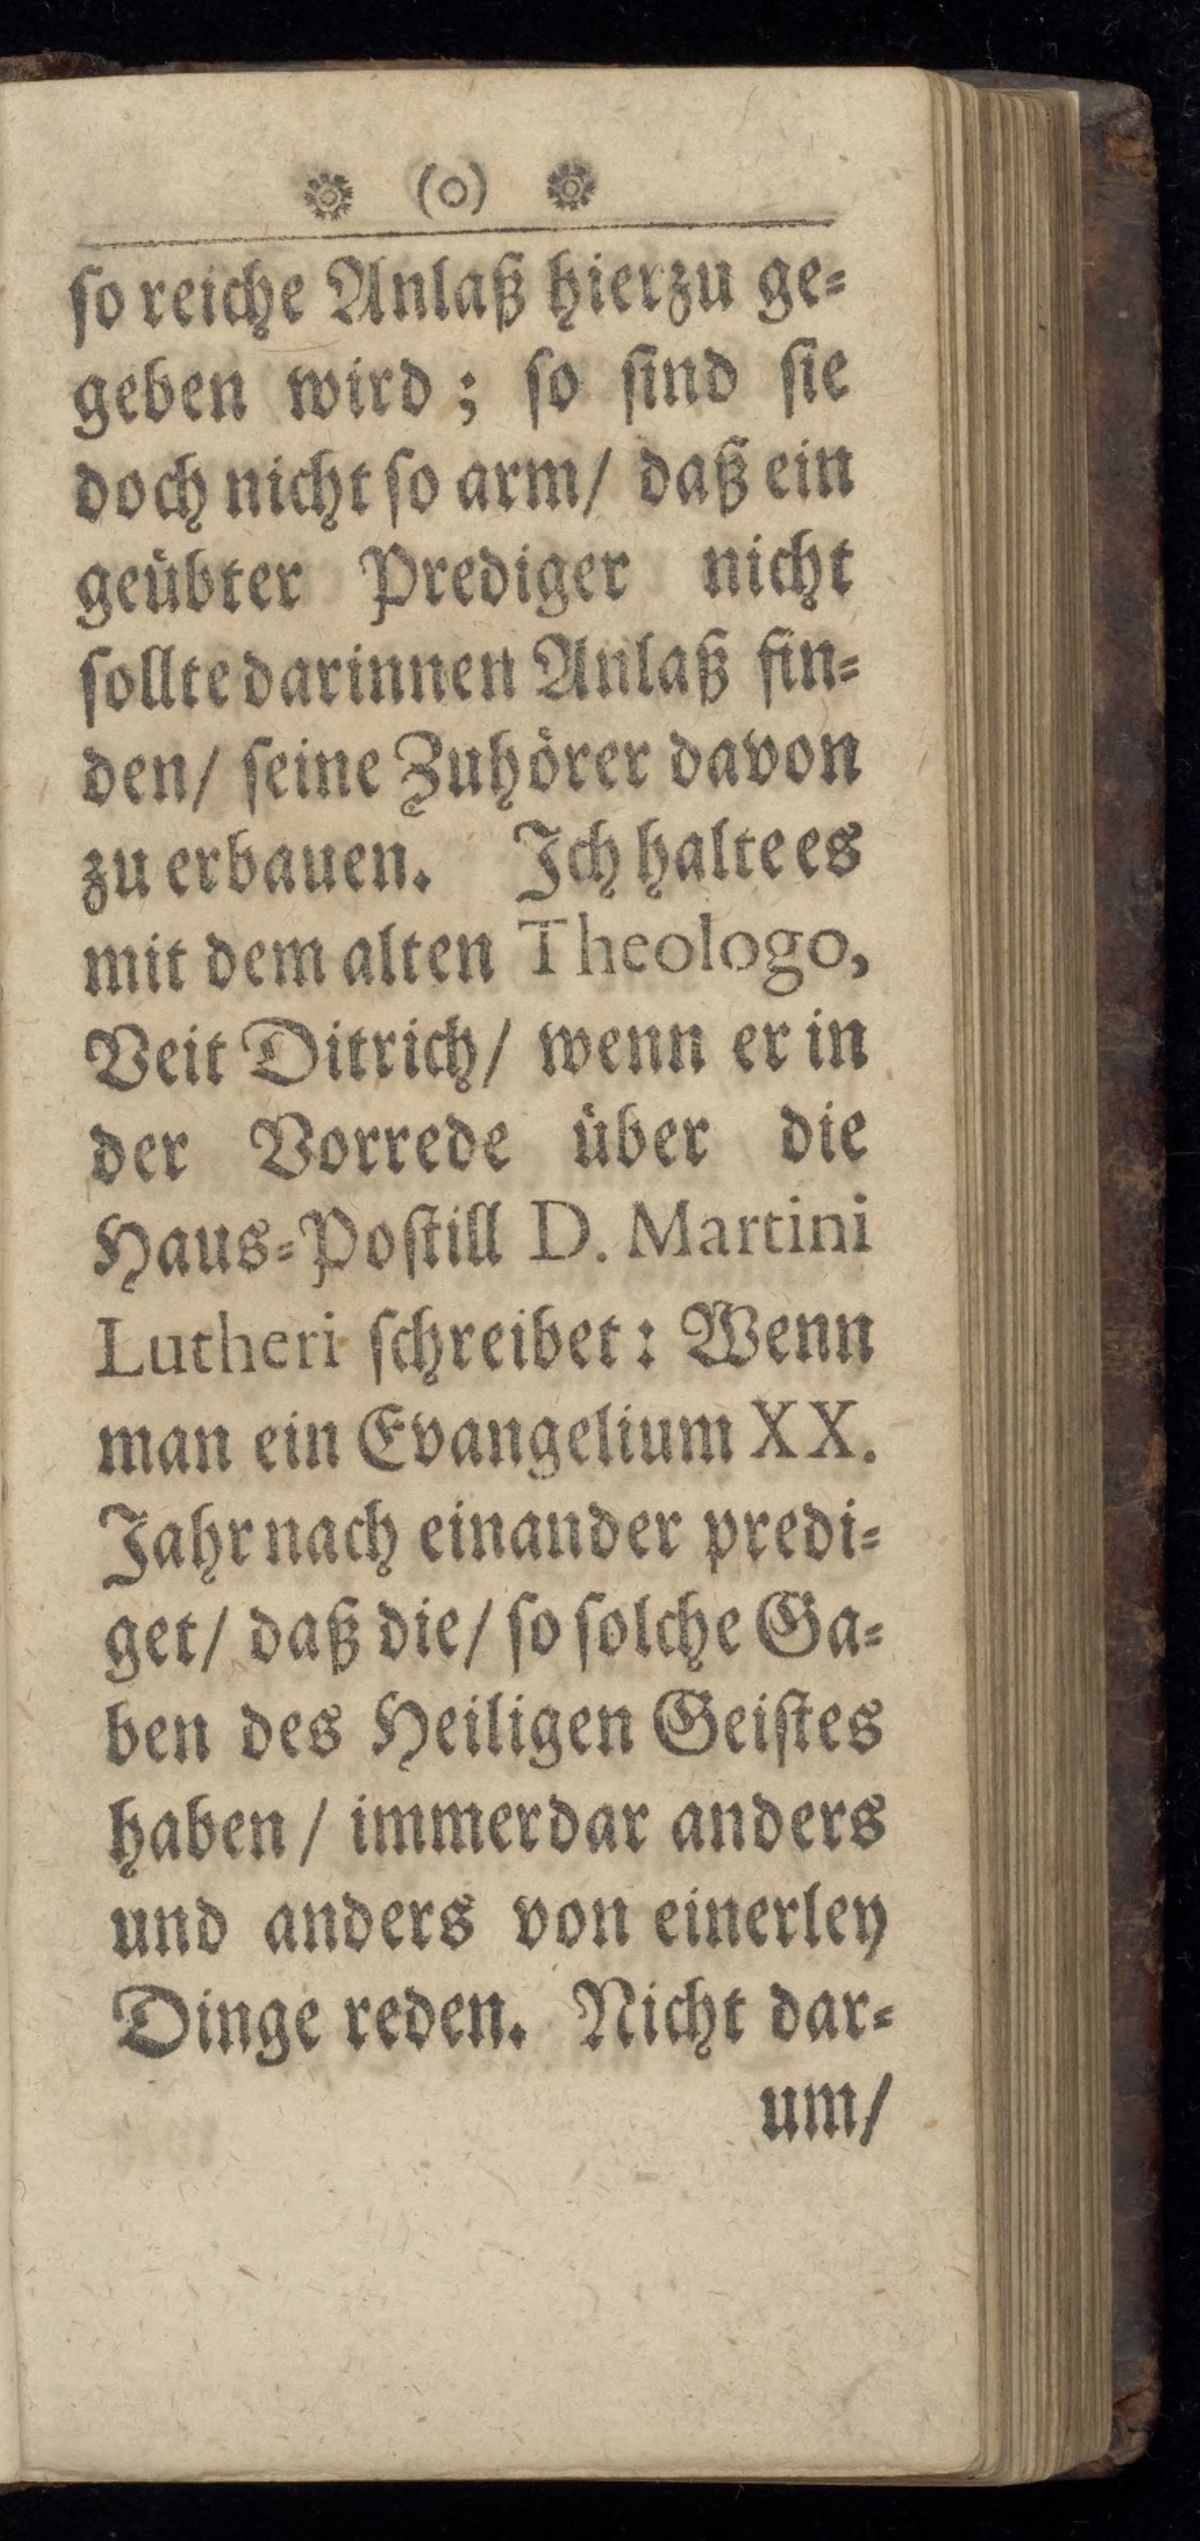 ❁ (o) ❁
ſo reiche Anlaß hierzu ge-
geben wird; ſo ſind ſie
doch nicht ſo arm/ daß ein
geübter Prediger nicht
ſollte darinnen Anlaß fin-
den/ ſeine Zuhörer davon
zu erbauen. Ich halte es
mit dem alten Theologo,
Veit Ditrich/ wenn er in
der Vorrede über die
Haus-Poſtill D. Martini
Lutheri ſchreibet: Wenn
man ein Evangelium XX.
Jahr nach einander predi-
get/ daß die/ ſo ſolche Ga-
ben des Heiligen Geiſtes
haben/ immerdar anders
und anders von einerley
Dinge reden. Nicht dar-
um/